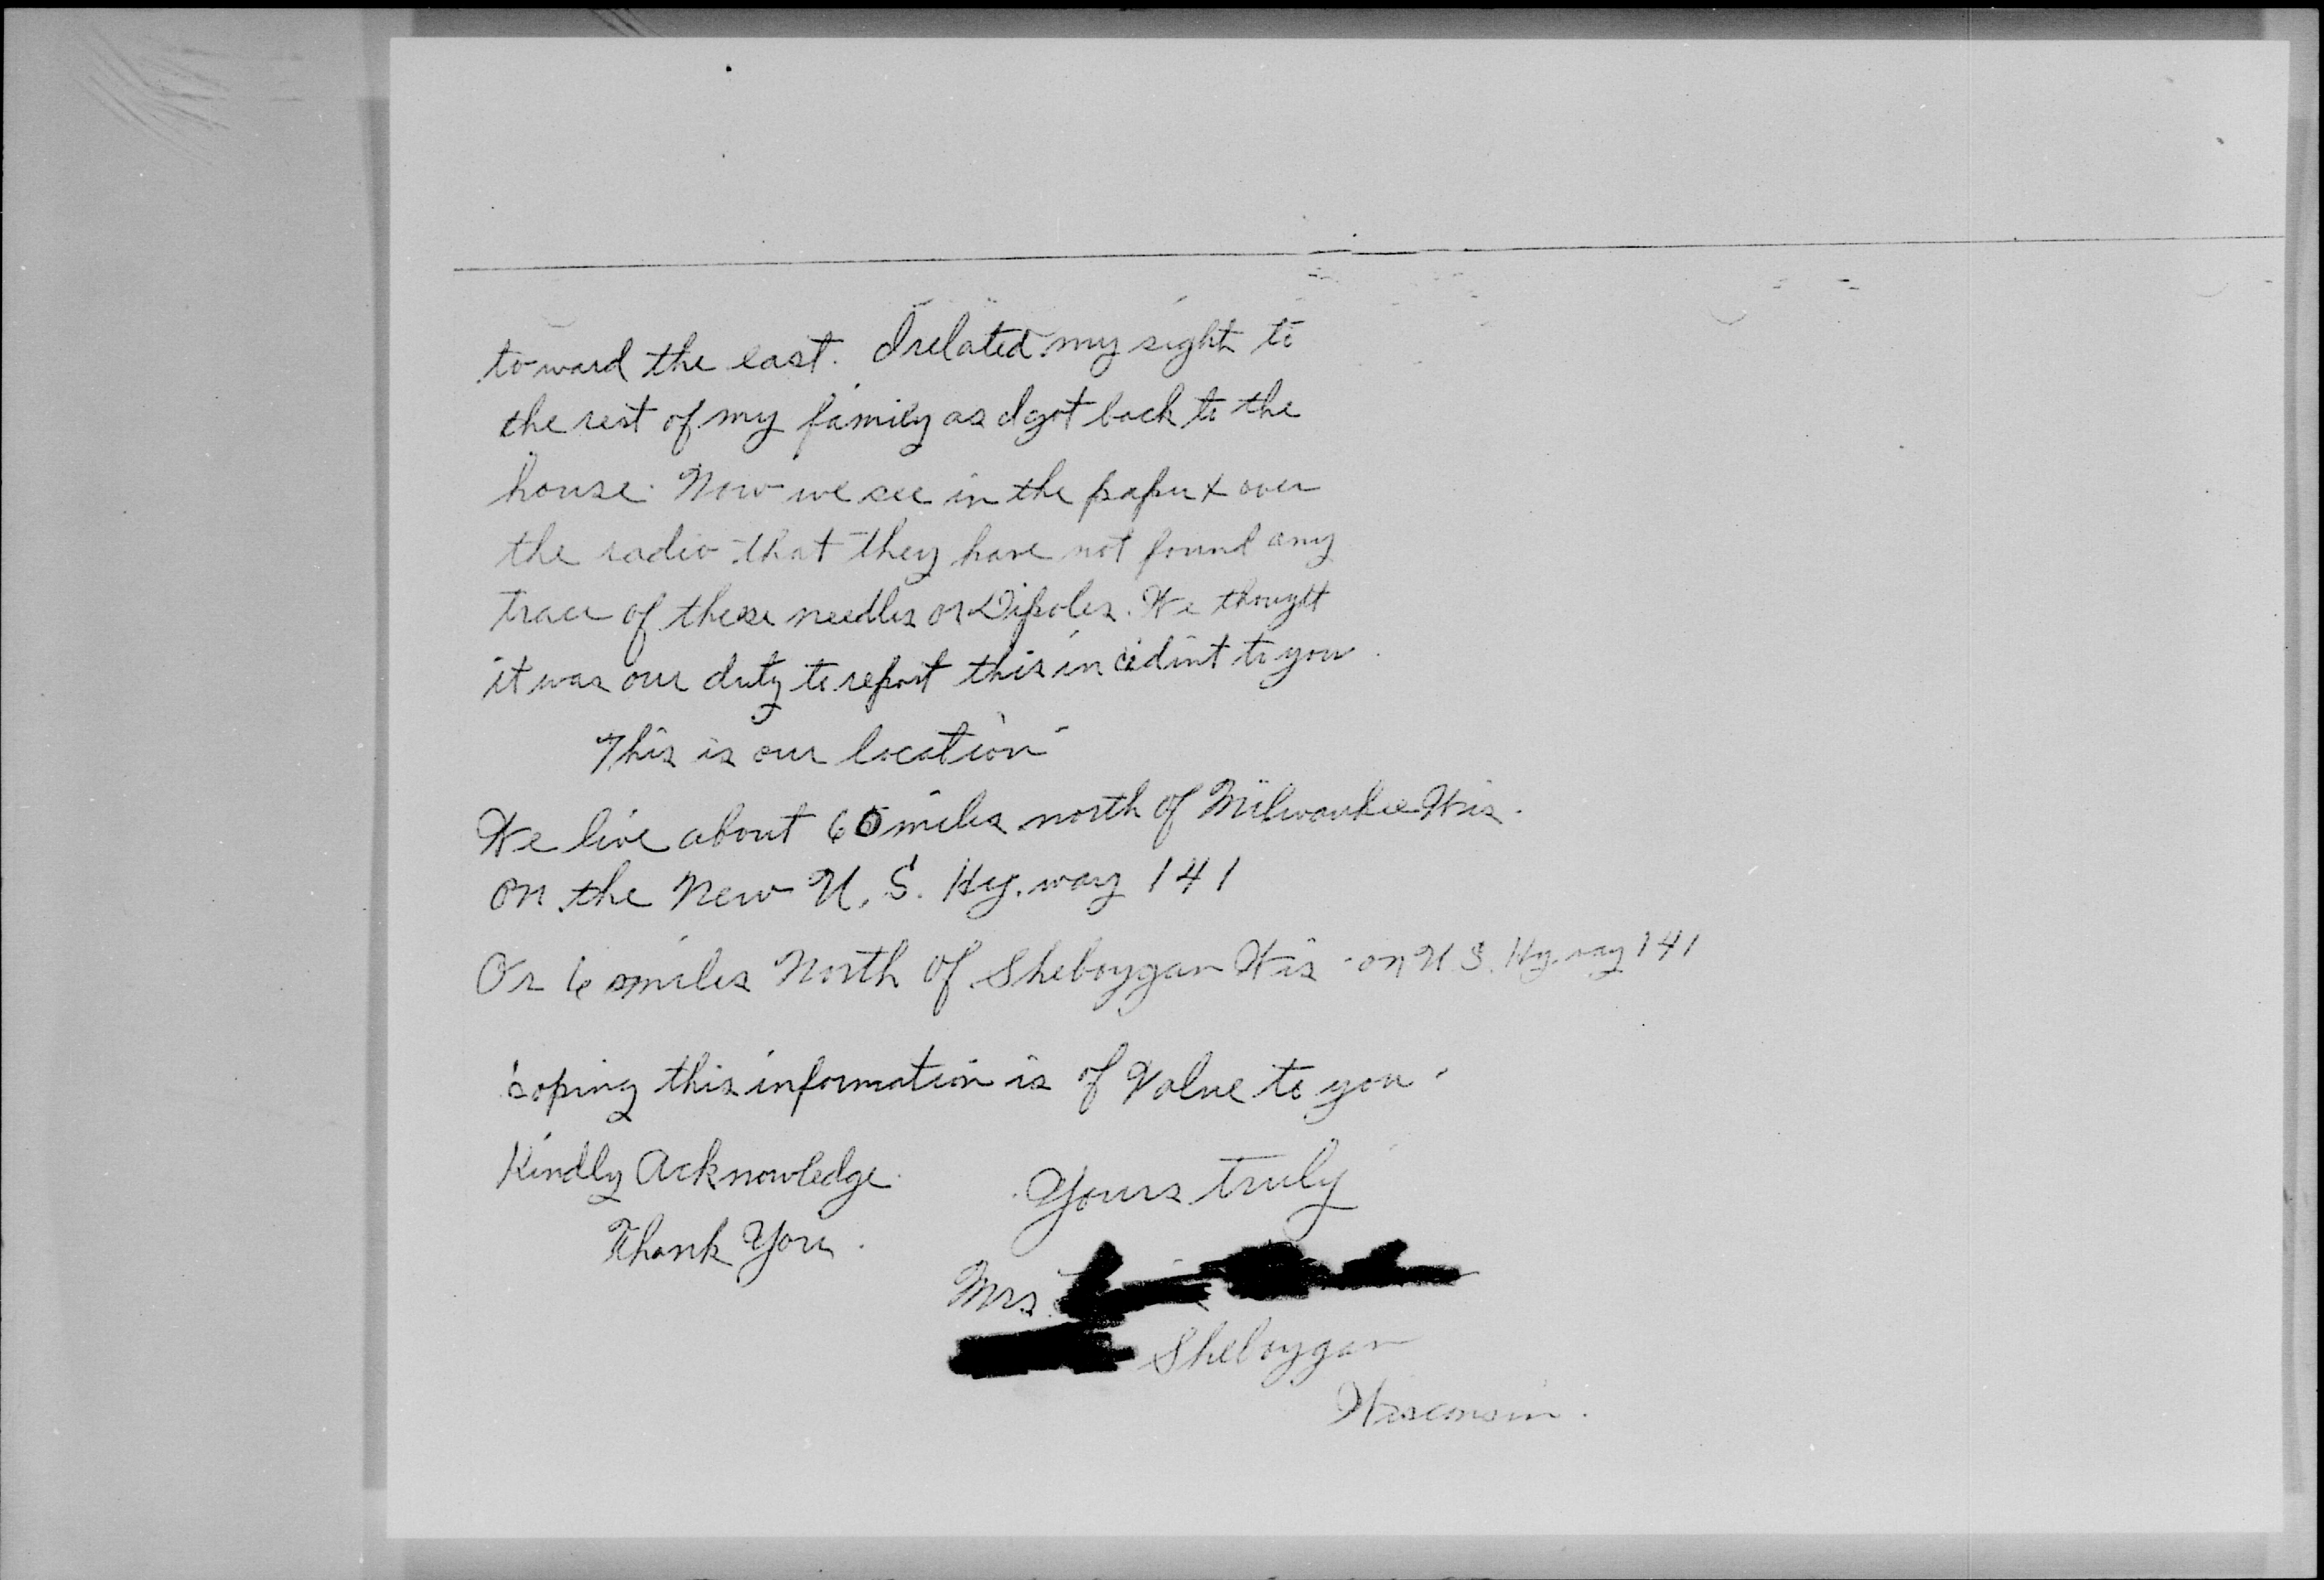 toward the east. I related my sight to
the rest of my family as I got back to the
house. Now we see in the paper & over
the radio that they have not found any
trace of these needles or Dipoles. We thought
it was our duty to report this incident to you.
This is our location
We live about 60 miles north of Milwaukee Wis.
on the New U.S. Hy.way 141
Or 6 miles North of Sheboygan Wis - on U S. Hy.way 141
oping this information is of Value to you.
Kindly Acknowledge.
Yours truly
Thank You.
Mrs.
Sheboygan
Wisconsin.